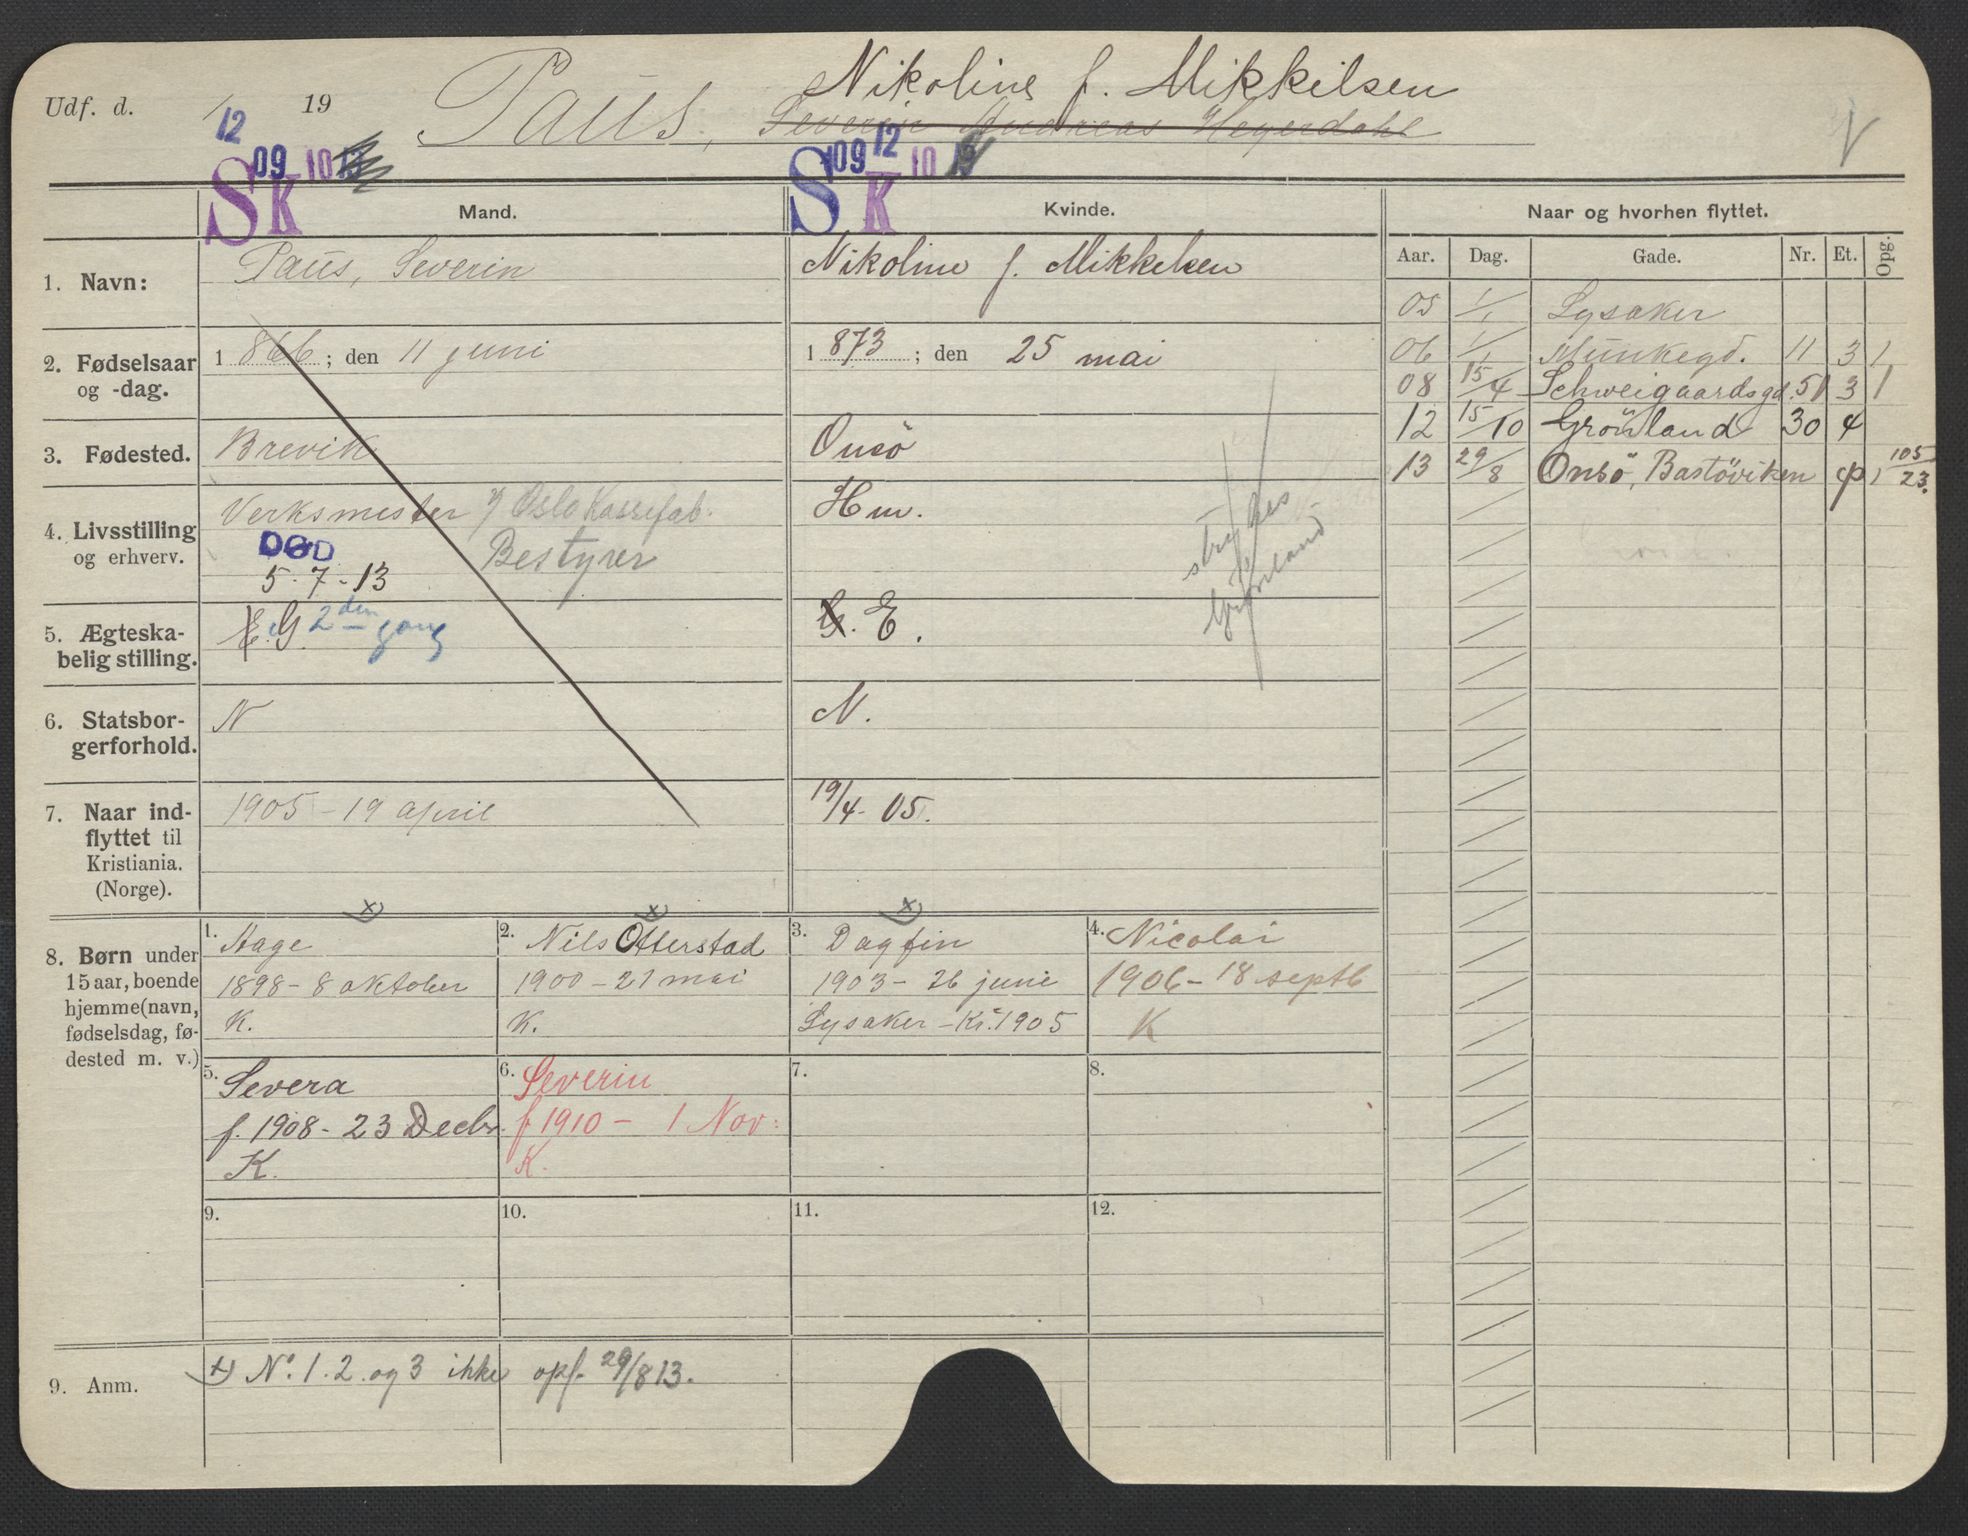 Udf. d. 19
Paus, Nikoline f. Mikkelsen
Severin Andreas Heyerdahl
12
09 10 13
SK
12
09 10
SK
Mand.
Kvinde.
Naar og hvorhen flyttet.
1. Navn:
Paus, Severin
Nikoline f. Mikkelsen
2. Fødselsaar
og -dag.
1866; den 11 juni
1873; den 25 mai
3. Fødested.
Brevik
Onsö
4. Livsstilling
og erhverv.
Verksmester v/ Oslo Kassefab.
Bestyrer
DØD
5-7-13
Hm.
strykes
Grönland
5. Ægteska-
belig stilling.
E. G. 2den gang
G. E.
6. Statsbor-
gerforhold.
N
N.
7. Naar ind-
flyttet til
Kristiania.
(Norge).
1905 - 19 april
19/4-05.
Aar. Dag. Gade. Nr. Et. Opg.
05 1/1 Lysaker
06 1/1 Munkegd. 11 3 1
08 15/4 Schweigaardsgd. 51 3 1
12 15/10 Grönland 30 4
13 29/8 Onsö, Bastöviken
105/23.
8. Børn under
15 aar, boende
hjemme (navn,
fødselsdag, fø-
dested m. v.)
x) x) x)
1. Aage
1898 - 8 oktober
K.
2. Nils Otterstad
1900 - 21 mai
K.
3. Dagfin
1903 - 26 juni
Lysaker - Kr. 1905
4. Nicolai
1906 - 18 septb
K
5. Severa
f. 1908 - 23 Decbr.
K.
6. Severin
f 1910 - 1 Nov:
K.
7.
8.
9.
10.
11.
12.
9. Anm.
x) No. 1. 2. og 3 ikke opf. 29/8 13.